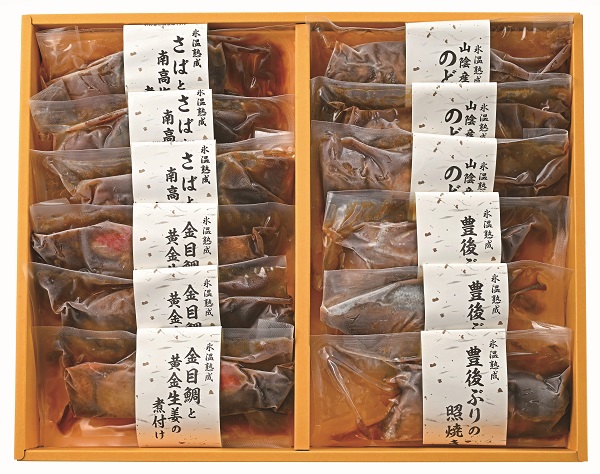 氷温熟成
さばと
南高
氷温熟成
さばと
南高
氷温熟成
さばと
南高
氷温熟成
金目鯛
黄金生
氷温熟成
金目鯛
黄金生
氷温熟成
金目鯛と
黄金生姜の
煮付け
氷温熟成
山陰産
のど
氷温熟成
山陰産
のど
氷温熟成
山陰産
のど
氷温熟成
豊後ぶ
氷温熟成
豊後ぶ
氷温熟成
豊後ぶりの
照焼き